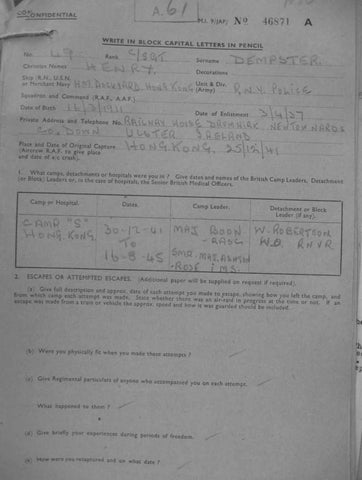 CONFIDENTIAL
A.61
M.I. 9/JAP/ Nº 46871 A
WRITE IN BLOCK CAPITAL LETTERS IN PENCIL
No. 49 Rank C/SGT Surname DEMPSTER
Christian Names HENRY Decorations
Ship (R.N., U.S.N. or Merchant Navy) H.M. DOCKYARD. HONG KONG Unit & Div. (Army) R.N.Y. POLICE
Squadron and Command (R.A.F., A.A.F.)
Date of Birth 11/3/1911 Date of Enlistment 2/4/27
Private Address and Telephone No. RAILWAY HOUSE NEWTOWNARDS
CO. DOWN ULSTER IRELAND
Place and Date of Original Capture HONG KONG. 25/12/41
(Aircrew R.A.F. to give place
and date of a/c crash).
1. What camps, detachments or hospitals were you in? Give dates and names of the British Camp Leaders, Detachment
(or Block) Leaders or, in the case of hospitals, the Senior British Medical Officers.
Camp or Hospital. Dates. Camp Leader. Detachment or Block Leader (if any).
CAMP "S" 30-12-41 MAJ. BOON W. ROBERTSON
HONG KONG. TO RASC W.O. R.N.V.R
16-8-45 S.M.O. MAJ. ASHTON
-ROSE I.M.S.
2. ESCAPES OR ATTEMPTED ESCAPES. (Additional paper will be supplied on request if required).
(a) Give full description and approx. date of each attempt you made to escape, showing how you left the camp, and
from which camp each attempt was made. State whether there was an air-raid in progress at the time or not. If an
escape was made from a train or vehicle the approx. speed and how it was guarded should be included.
(b) Were you physically fit when you made these attempts ?
(c) Give Regimental particulars of anyone who accompanied you on each attempt.
What happened to them ?
(d) Give briefly your experiences during periods of freedom.
(e) How were you recaptured and on what date ?